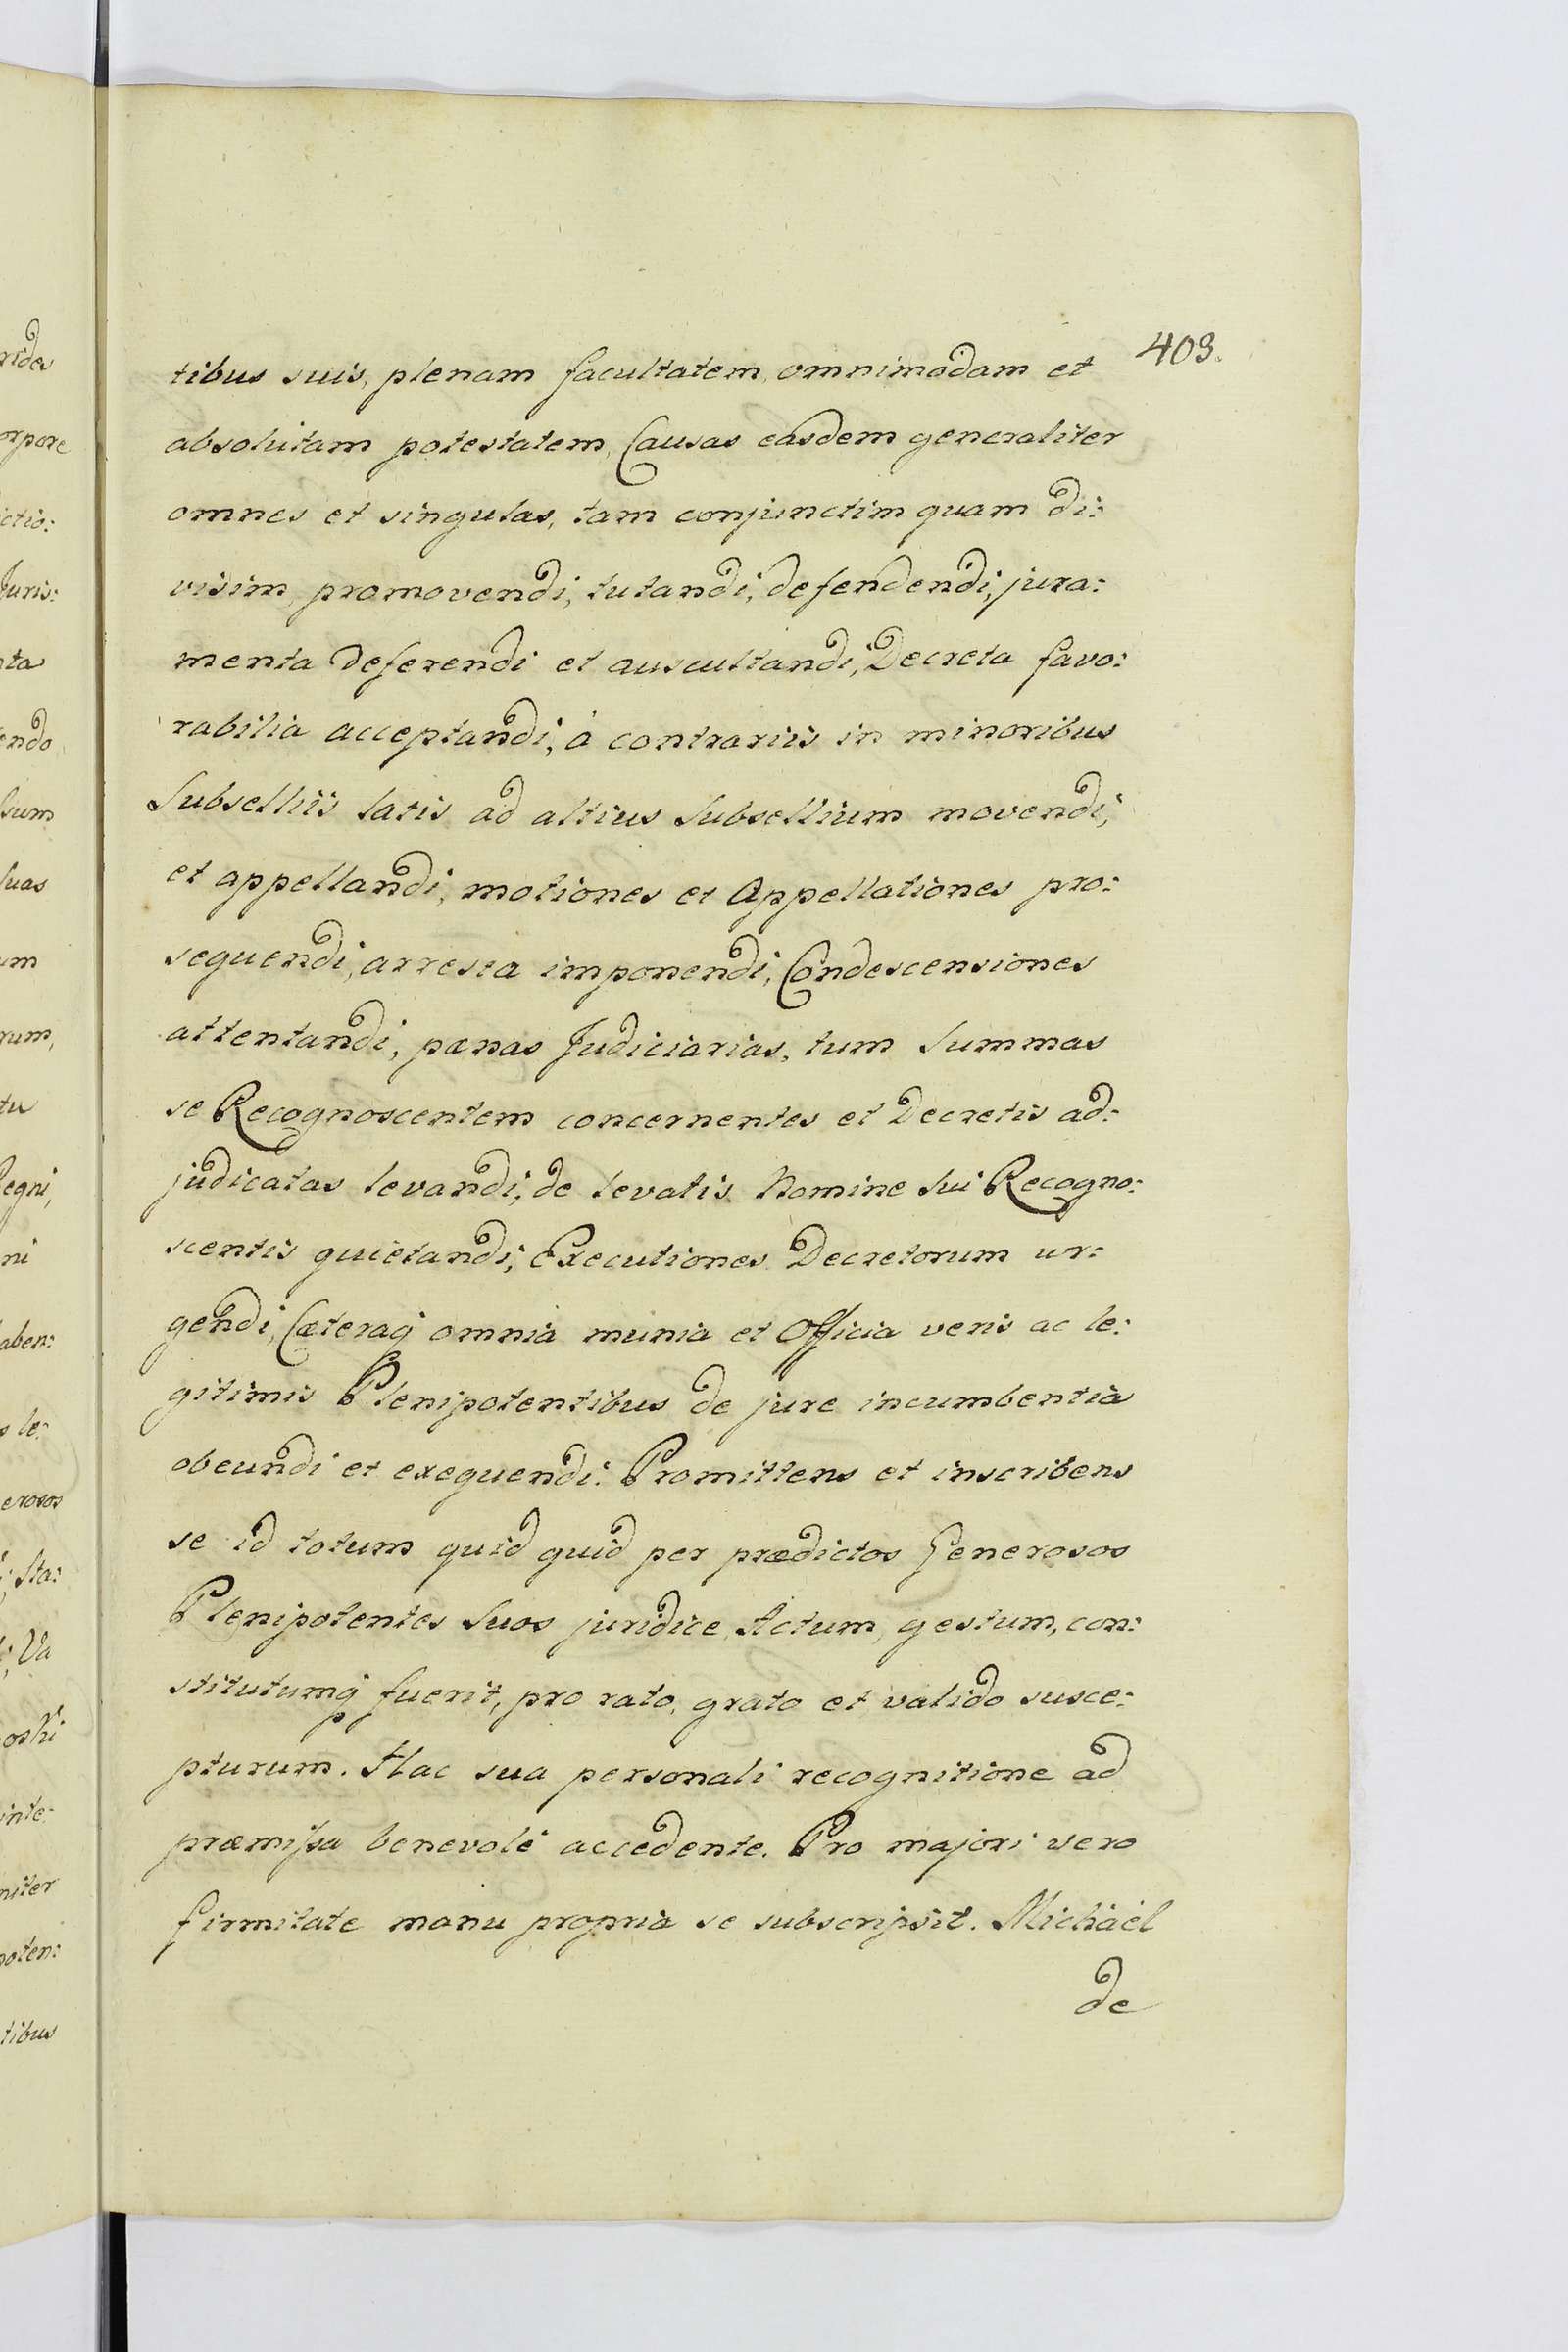 403.
tibus suis, plenam facultatem, omnimodam et
absolutam potestatem, Causas easdem generaliter
omnes et singulas, tam conjunctim quam di:
visim promovendi, tutandi, defendendi, jura:
menta deferendi et auscultandi, Decreta favo:
rabilia acceptandi, à contrariis in minoribus
Subselliis latis ad altius Subsellium movendi,
et appellandi, motiones et Appellationes pro:
sequendi, arresta imponendi, Condescensiones
attentandi, pænas Judiciarias, tum Summas
se Recognoscentem concernentes et Decretis ad:
judicatas levandi, de levatis Nomine Sui Recogno:
scentis quietandi, Executiones Decretorum ur:
gendi, Cæteraq omnia munia et Officia veris ac le:
gitimis Plenipotentibus de jure incumbentia
obeundi et exequendi. Promittens et inscribens
se id totum quid quid per prædictos Generosos
Plenipotentes Suos juridice Actum, gestum, con:
stitutumq fuerit, pro rato, grato et valido susce:
pturum. Hac sua personali recognitione ad
præmissa benevolè accedente. Pro majori vero
firmitate manu propria se subscripsit. Michaël
de
rides
orpore
ctio:
Juris:
nta
endo
sum
suas
um
rum,
tu
Regni,
ni
aben:
s le:
erosos
Sta:
Va
oski
inte:
niter
poten:
tibus